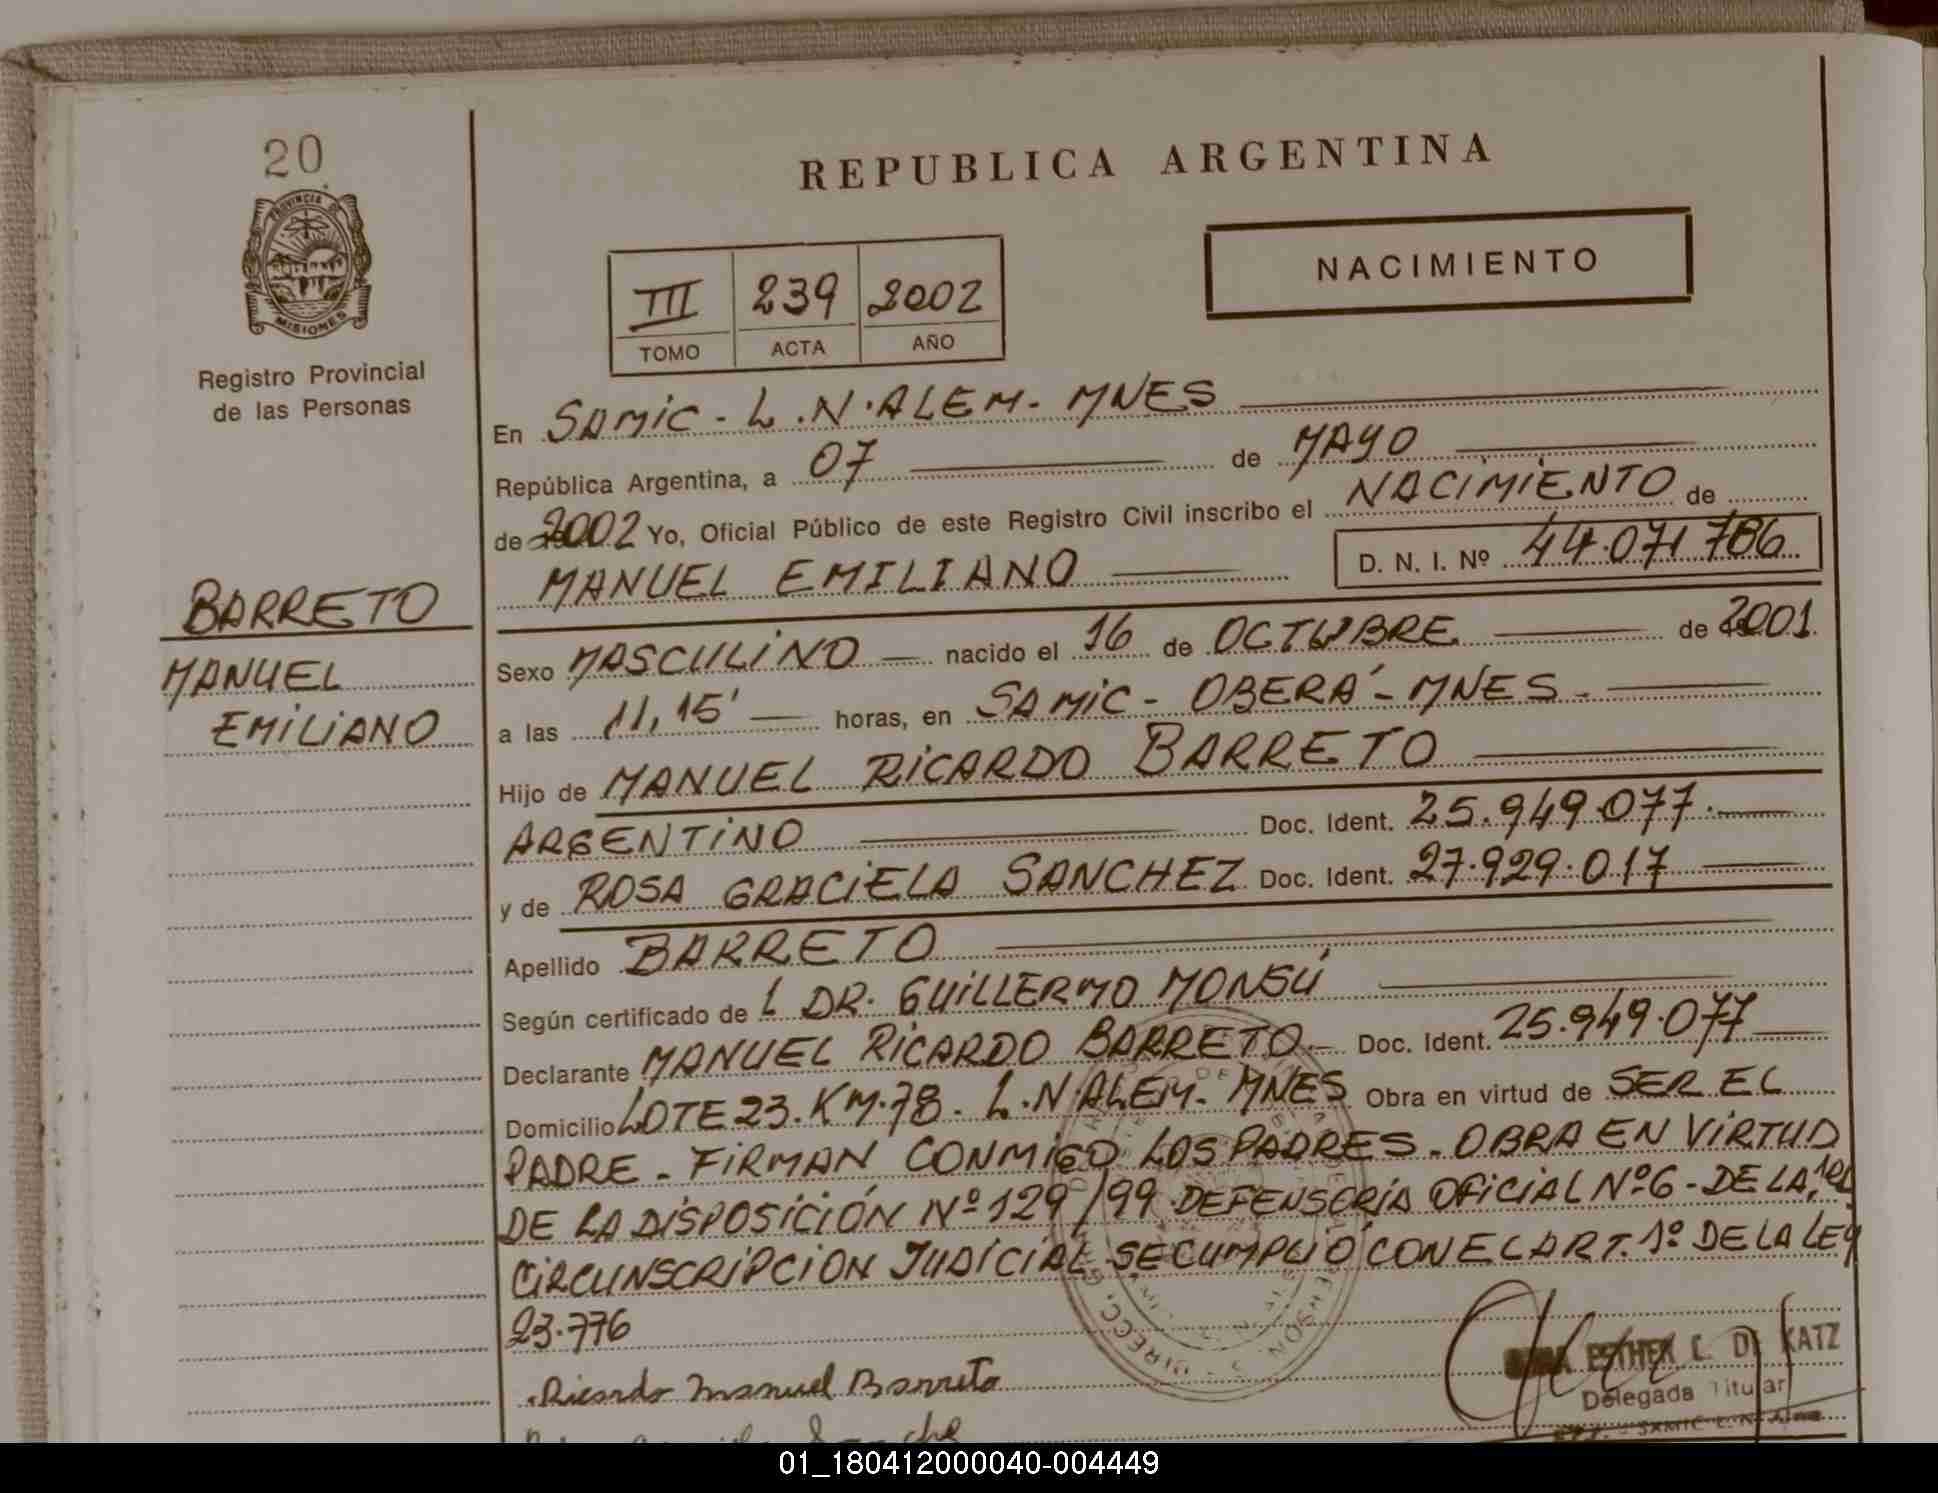 20
PROVINCIA DE
MISIONES
Registro Provincial
de las Personas
BARRETO
MANUEL
EMILIANO
REPUBLICA ARGENTINA
NACIMIENTO
III 239 2002
TOMO ACTA AÑO
En SAMIC - L.N.ALEM - MNES
República Argentina, a 07 de MAYO
de 2002 Yo, Oficial Público de este Registro Civil inscribo el NACIMIENTO de
MANUEL EMILIANO D. N. I. Nº 44.071786
Sexo MASCULINO nacido el 16 de OCTUBRE de 2001
a las 11,15' horas, en SAMIC - OBERÁ - MNES -
Hijo de MANUEL RICARDO BARRETO
ARGENTINO Doc. Ident. 25.949.077.
y de ROSA GRACIELA SANCHEZ Doc. Ident. 27.929.017
Apellido BARRETO
Según certificado de L DR. GUILLERMO MONSÚ
Declarante MANUEL RICARDO BARRETO Doc. Ident. 25.949.077
Domicilio LOTE 23. KM.78. L.N ALEM. MNES Obra en virtud de SER EL
PADRE - FIRMAN CONMIGO LOS PADRES - OBRA EN VIRTUD
DE LA DISPOSICIÓN Nº 129/99 DEFENSORÍA OFICIAL Nº 6 - DE LA 1ra
CIRCUNSCRIPCION JUDICIAL SE CUMPLIÓ CON EL ART. 1º DE LA LEY
23.776
Ricardo Manuel Barreto
ESTHER L. DE KATZ
Delegada Titular
SAMIC L. N. Alem
01_180412000040-004449